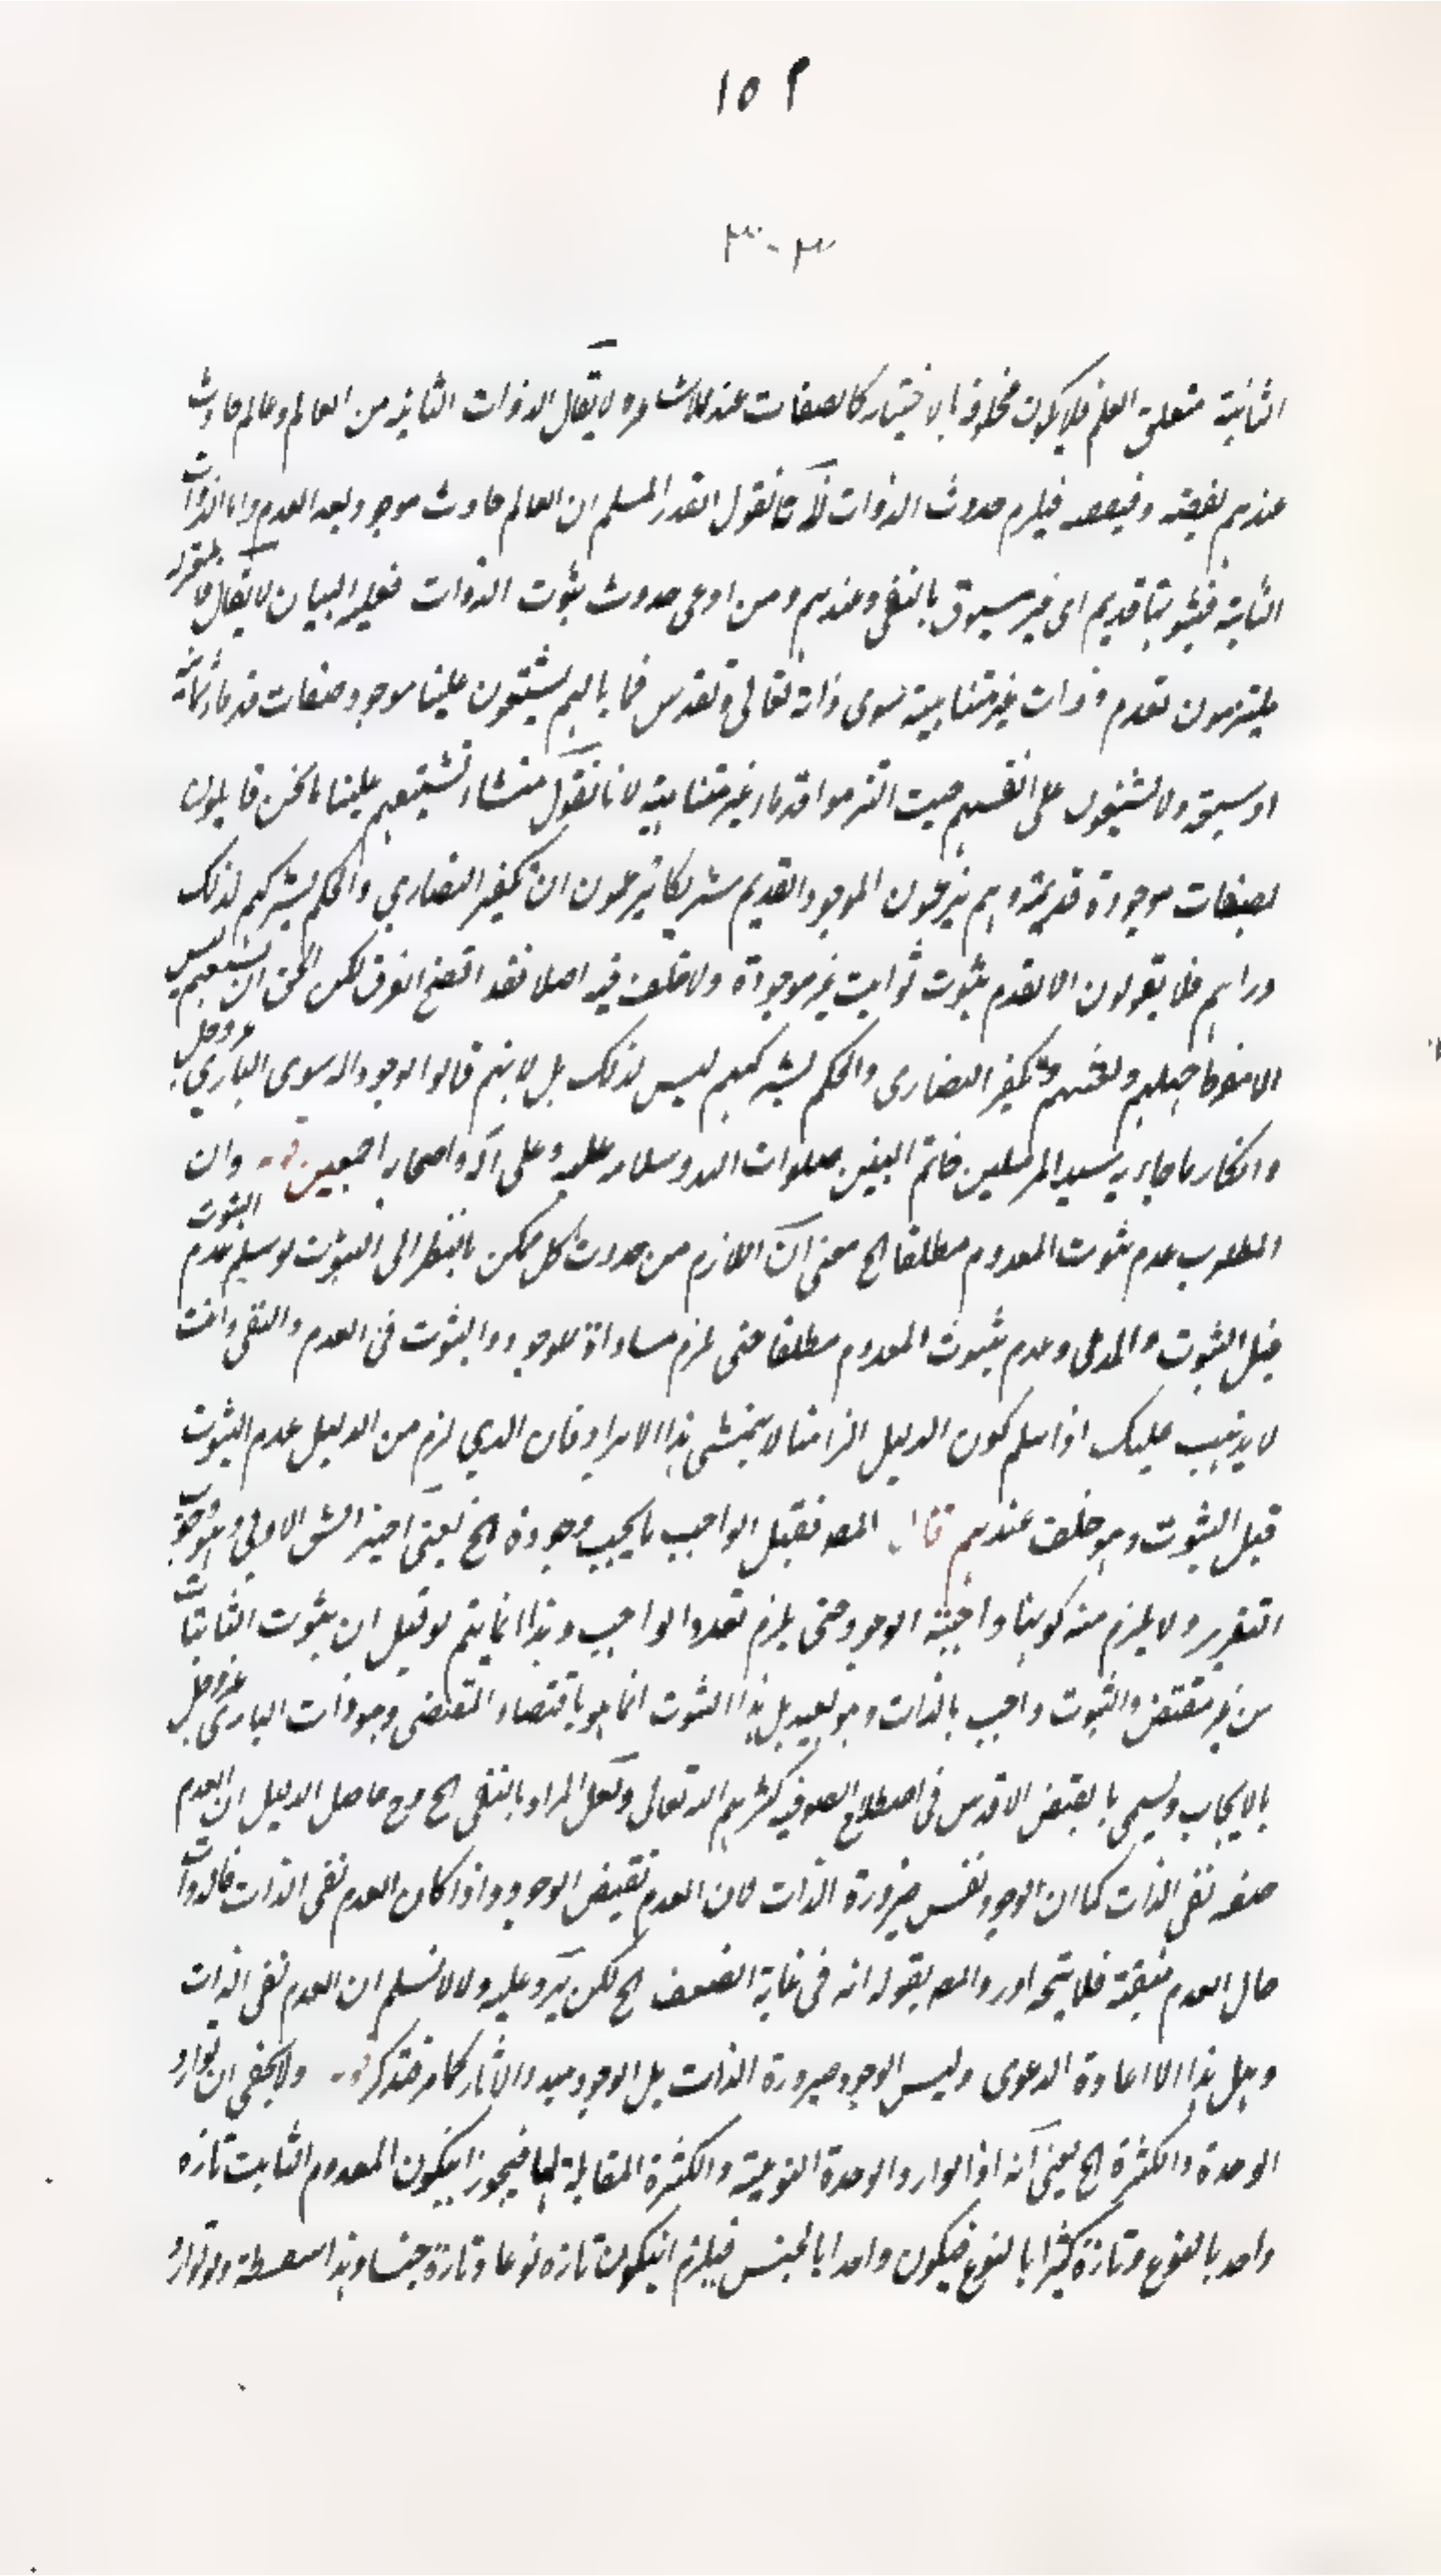 ١٥٢
الثانية متعلق العلم فلا يكون مخلوقة بالاختيار كالصفات عند الاشاعره لا يقال الذوات الثانية من العالم وعالم حادث
عندهم فيلزم حدوث الذوات لانا نقول القدر المسلم ان العالم حادث موجود بعد العدم واما الذوات
الثابتة فثبوتها قديم اى غير مسبوق بالنفى وعندهم ومن ادعى حدوث ثبوت الذوات فعليه البيان لا يقال
يلتزمون تقدم ذوات غير متناهية سوى ذاته تعالى وتقدس فما بالهم يشنعون علينا موجود صفات قدماء ثمانية
او سبعة ولا يشنعون على انفسهم حيث التزموا قدماء غير متناهية لانا نقول منشاء تشنيعهم علينا نحن قايلون
بصفات موجودة قديمة وهم يزعمون الموجود القديم شريكا يزعمون ان تكفير النصارى والحكم بشركهم لذلك
فلا يقولون الا بقدم ثبوت ثوابت غير موجودة ولا خلف فيه اصلا فقد اتضح الفرق لكن الحق ان تشنيعهم ليس
الا لفرط جهلهم وتكفير النصارى والحكم بشركهم ليس لذلك بل لانهم قالوا بوجود اله سوى البارى عز وجل
وانكار ما جاء به سيد المرسلين خاتم النبيين صلوات الله وسلامه عليه وعلى اله واصحابه اجمعين قوله وان
المطلوب عدم ثبوت المعدوم مطلقا الخ معنى ان اللازم من حدوث كل ممكن بالنظر الى الثبوت لو سلم عدم الثبوت
قبل الثبوت والمدعى وعدم ثبوت المعدوم مطلقا حتى لزم مساواة الوجود والثبوت فى العدم والنفى وانت
لا يذهب عليك اذا سلم كون الدليل الزاميا لا يتمشى هذا الايراد فان الذي لزم من الدليل عدم الثبوت
قبل الثبوت وهو خلف عندهم قال المصـ فقيل الواجب ما يجب وجوده الخ يعنى اختير الشق الاول وهو وجوب
التقرر ولا يلزم منه كونها واجبة الوجود حتى يلزم تعدد الواجب وهذا انما يتم لو قيل ان ثبوت الثابتات
من غير مقتض والثبوت واجب بالذات وهو بعيد بل هذا الثبوت انما هو باقتضاء المقتضى وهو ذات البارى عز وجل
بالايجاب ويسمى بالفيض الاقدس فى اصطلاح الصوفيه كثرهم الله تعالى ولعل المراد بالنفى الخ وح حاصل الدليل ان العدم
نفى الذات كما ان الوجود نفس صيرورة الذات لان العدم نقيض الوجود واذا كان العدم نفى الذات فالذوات
حال العدم منفية فلا يتجه اورد المصـ بقوله انه فى غاية الضعف الخ لكن يرد عليه ولا لا نسلم ان العدم نفى الذات
وهل هذا الا اعادة الدعوى وليس الوجود صيرورة الذات بل الوجود مبدء الاثار كما مر فتذكر قوله ولا يخفى ان توارد
الوحدة والكثرة الخ يعنى انه اذا توارد الوحدة النوعية والكثرة المقابلة لها فيجوز ان يكون المعدوم الثابت تارة
واحد بالنوع وتارة كثيرا بالنوع فيكون واحدا بالجنس فيلزم ان يكون تارة نوعا وتارة جنسا وهذا سفسطة وتوارد